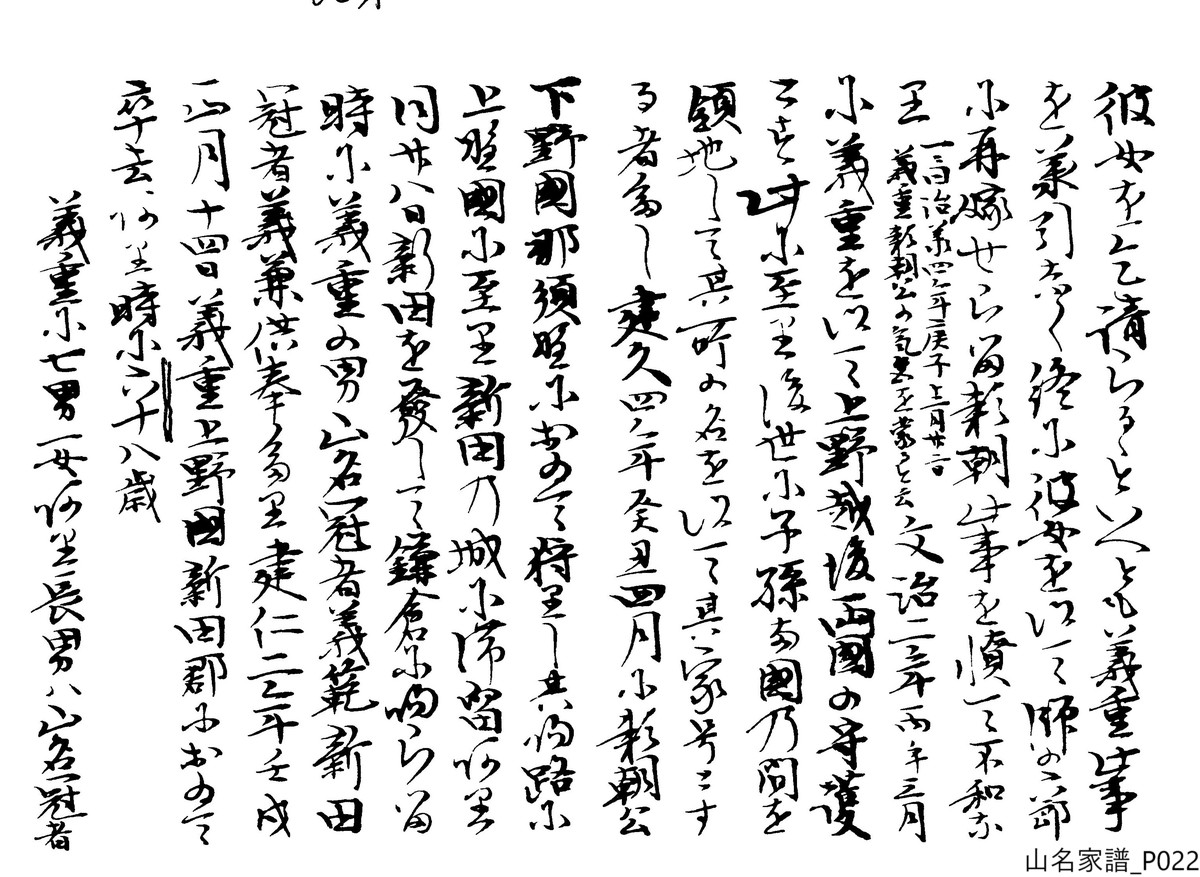 彼女を乞請らるゝといへとも義重此事
を兼引なく終に彼女を以て師の六郎
に再嫁せらる故頼朝此事を憤て不和な
里 一曰治承四年庚子十二月廿二日
義重頼朝公の気色を蒙ると云 文治二年丙午三月
に義重を以て上野越後両國の守護
とす此に至里後世に子孫両國乃間を
領地して其所の名を以て其家号とす
る者多し建久四年癸丑四月に頼朝公
下野國那須野におゐて狩里し其帰路に
上野國に至里新田乃城に滞留ありり
同廿八日新田を發して鎌倉に帰らる
時に義重の男山名冠者義範新田
冠者義兼供奉多里建仁二年壬戌
正月十四日義重上野國新田郡におゐて
卒去あり里時に六十八歳
義重に七男一女あり里長男八山名冠者
山名家譜_P022